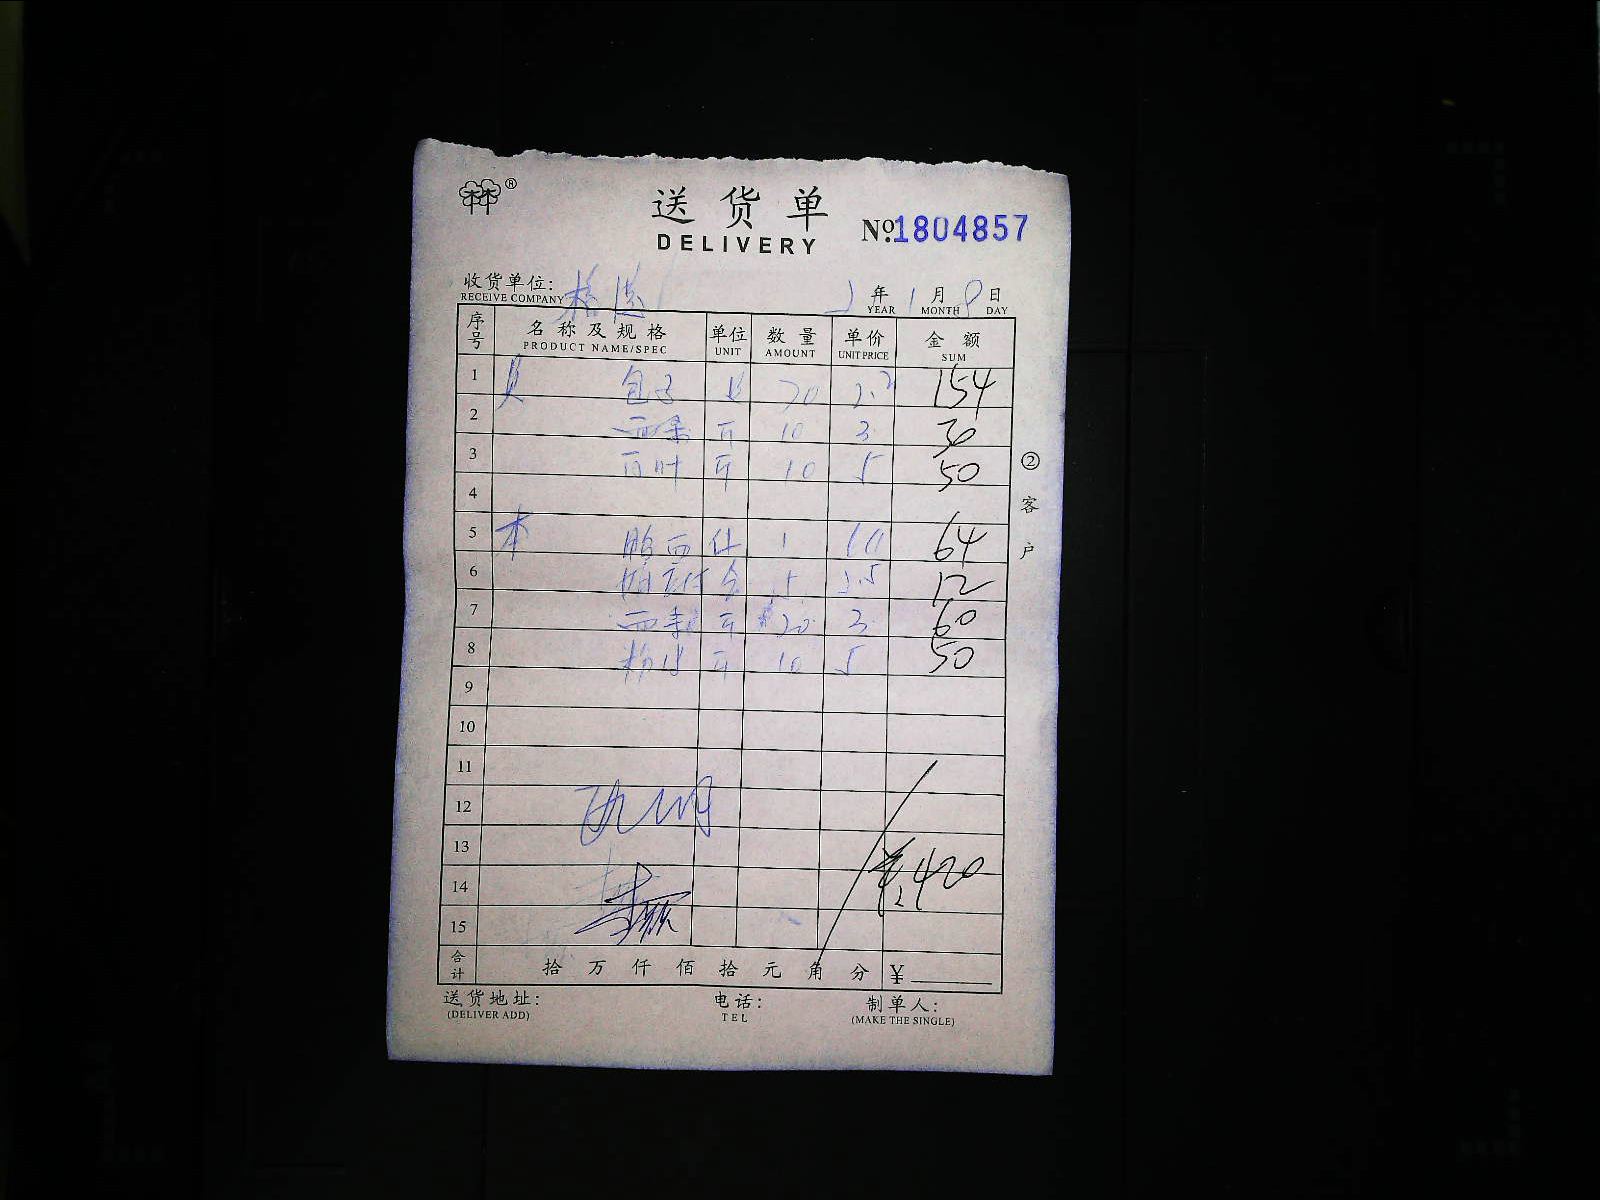 送货单
DELIVERY
№1804857
收货单位: 年 1 月 8 日
RECEIVE COMPANY YEAR MONTH DAY
序号 名称及规格 单位 数量 单价 金额
PRODUCT NAME/SPEC UNIT AMOUNT UNIT PRICE SUM
1 包子 154
2 斤 10 3 30
3 百叶 斤 10 5 50
4
5 本 什 1 64
6 5 2.5 12
7 斤 20 3 60
8 斤 10 5 50
9
10
11
12
13
14 ¥420
15
合计 拾 万 仟 佰 拾 元 角 分 ¥
② 客户
送货地址: 电话: 制单人:
(DELIVER ADD) TEL (MAKE THE SINGLE)